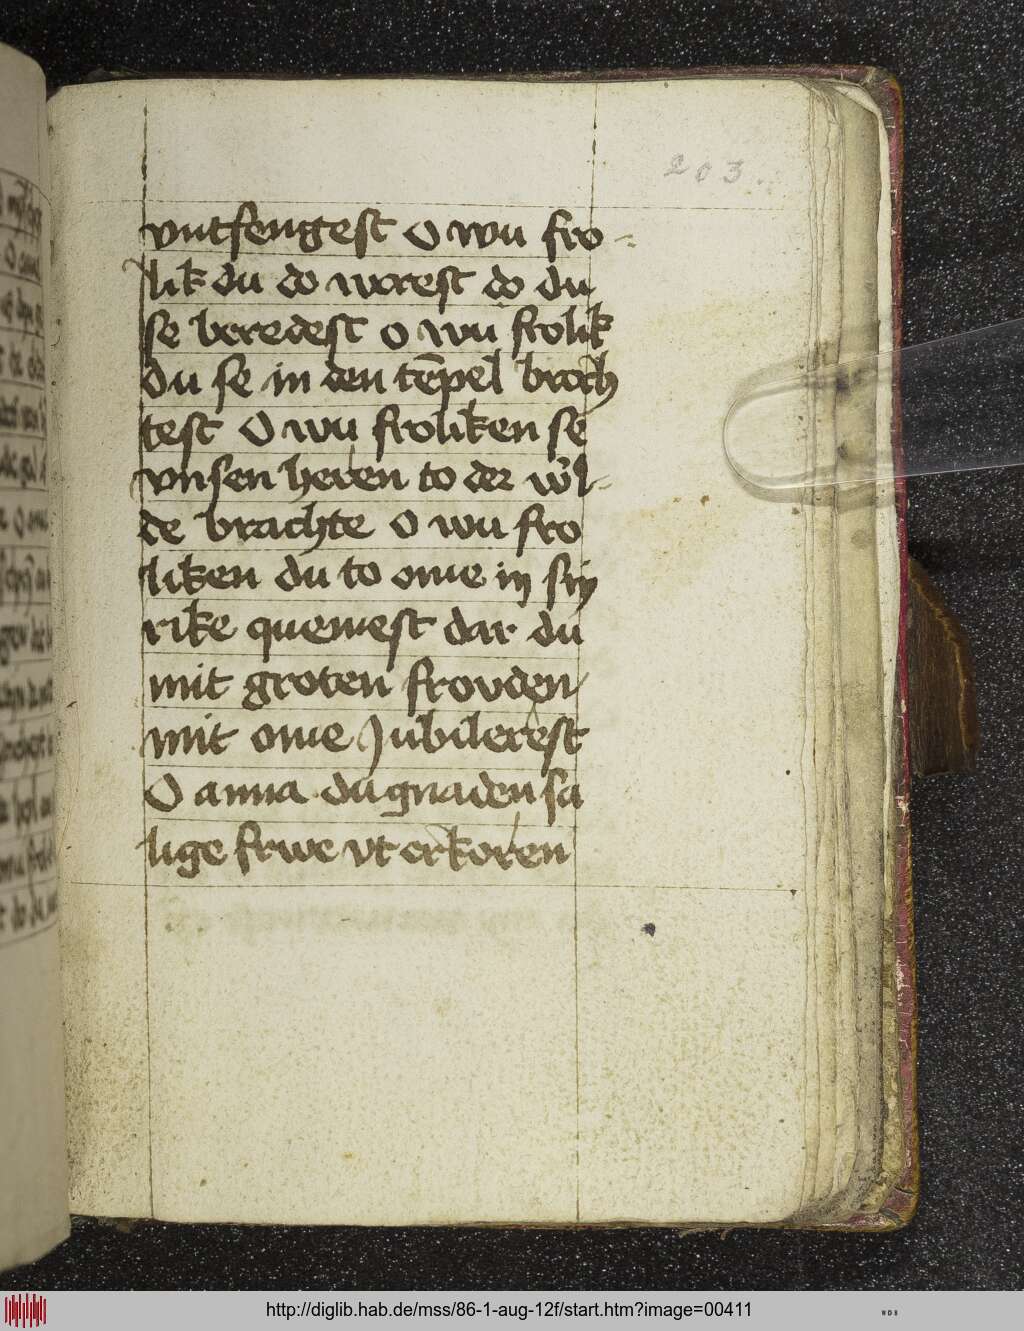 203.
vntfengest O wu fro-
lik du do werest do du
se beredest o wu frolik
du se in den te͞pel broch
test O wu froliken se
vnsen heren to der w͛l-
de brachte O wu fro
liken du to ome in syn
rike quemest dar du
mit groten frouden
mit ome Jubilerest
O anna du gnaden sa
lige frwe vt erkoren
http://diglib.hab.de/mss/86-1-aug-12f/start.htm?image=00411
WDB